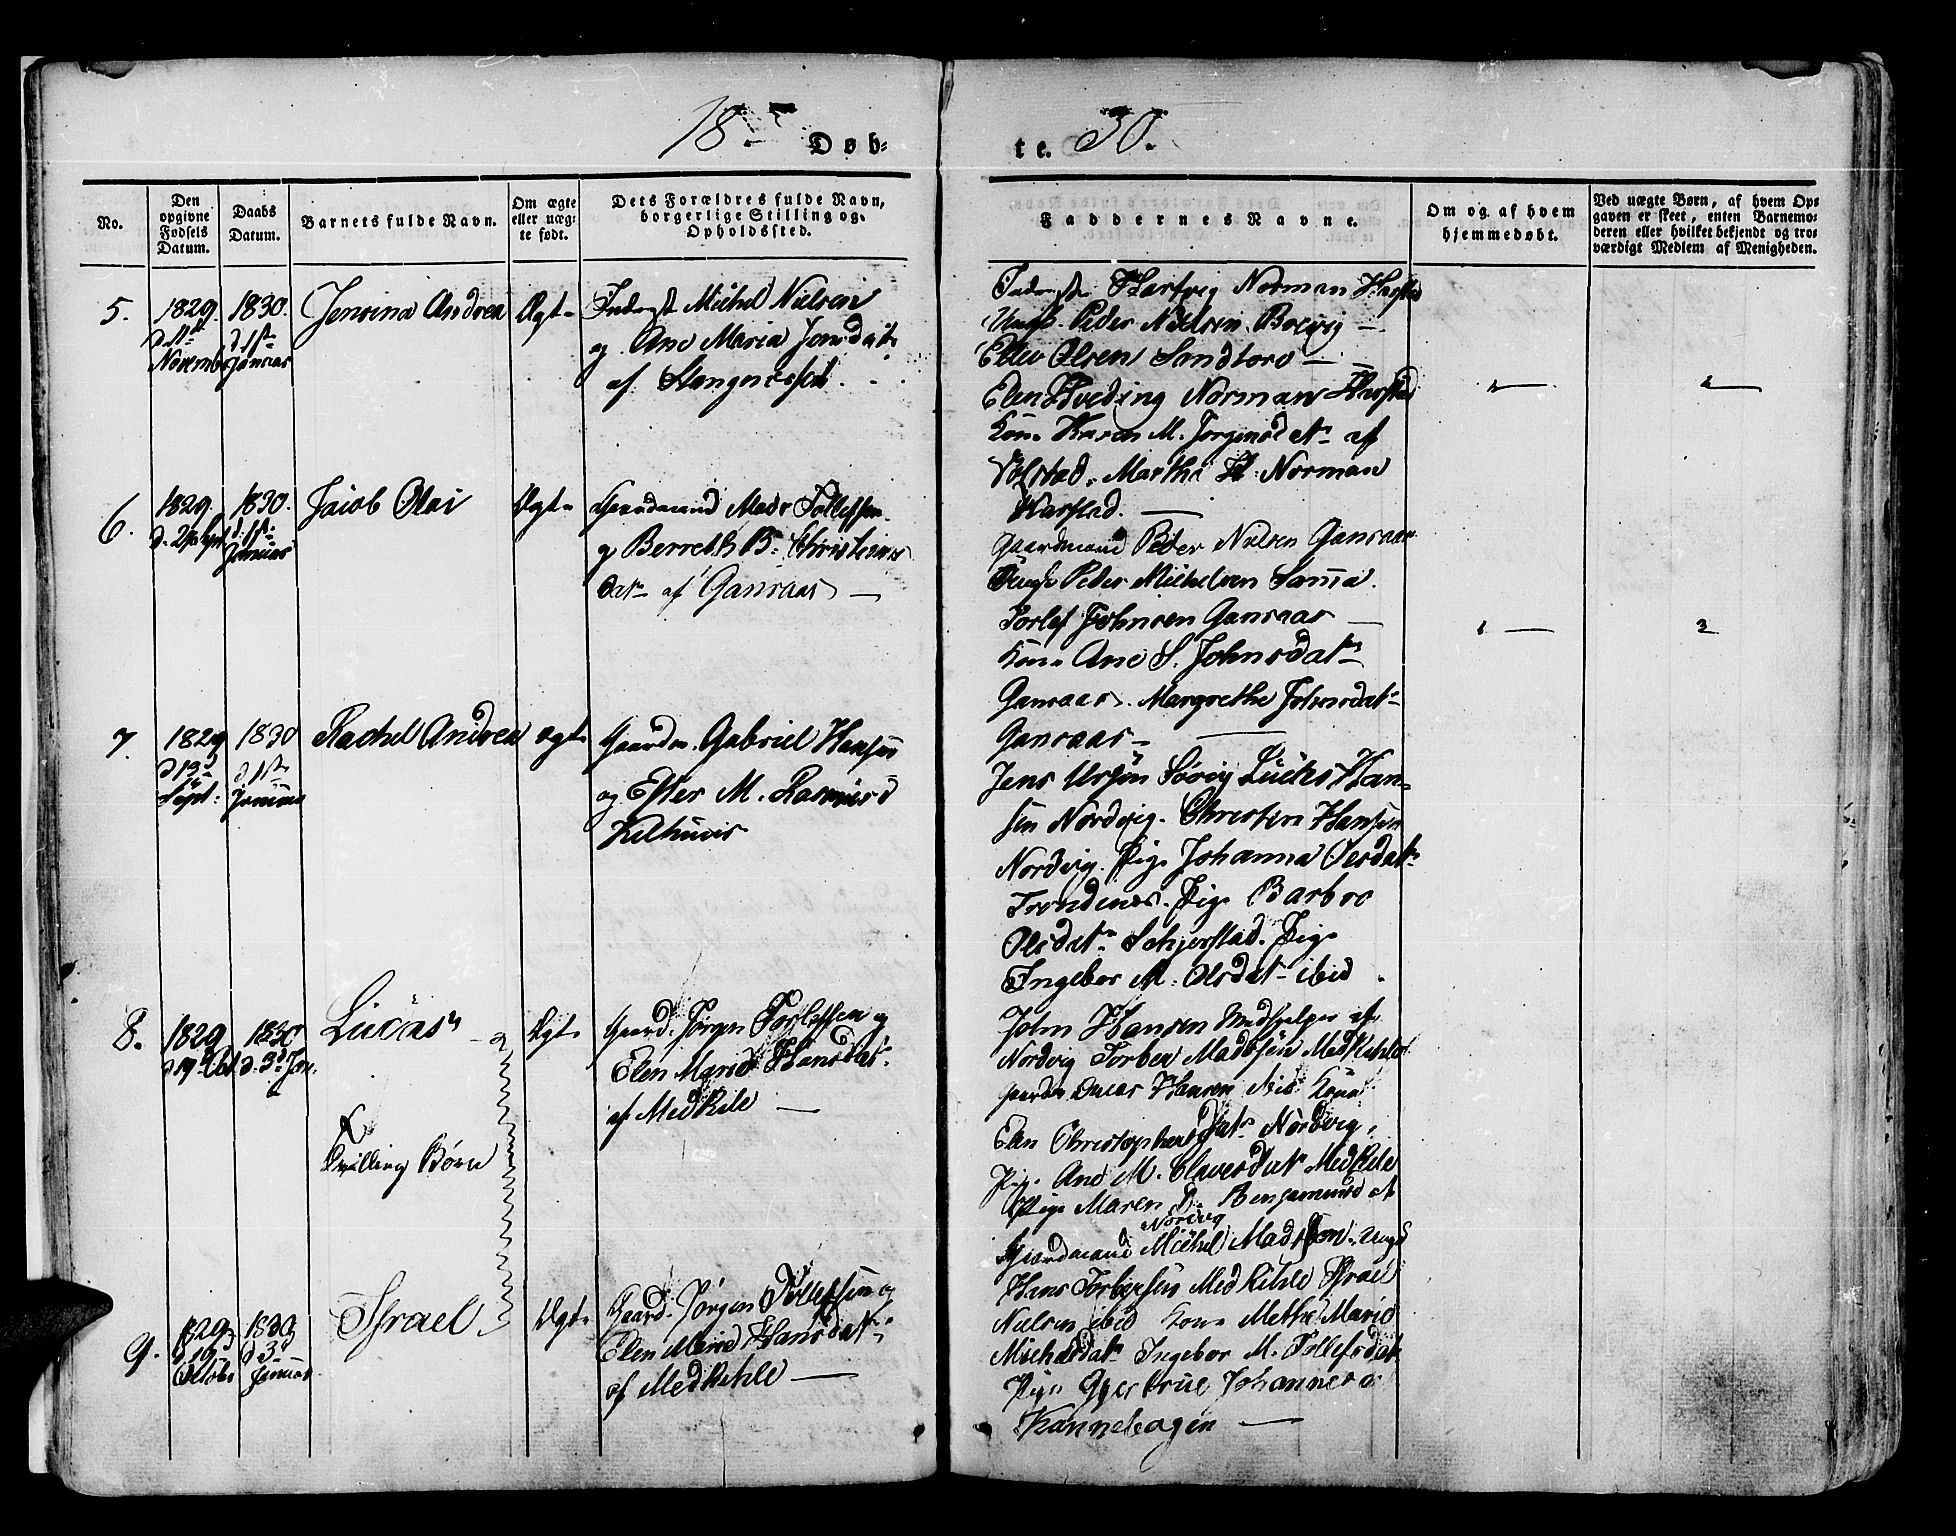 18
Døb-
te. 30.
No.
Den opgivne Fødsels Datum.
Daabs Datum.
Barnets fulde Navn.
Om ægte eller uæg-
te født.
Dets Forældres fulde Navn,
borgerlige Stilling og
Opholdssted.
Faddernes Navne.
Om og af hvem
hjemmedøbt.
Ved uægte Børn, af hvem Op-
gaven er skeet, enten Barnemo-
deren eller hvilket bekjendt og tro-
værdigt Medlem af Menigheden.
5.
1829.
Novembr
1830.
d 1st
Januar
Jensina Andrea
Ægte
Michel Nielsen
og Ane Maria Jonsdatr
af Stangnesset.
Hartvig Norman Harstad
Ungk. Peder Nielsen Bergvig
Ellev Olsen Sandtorv
Elen Hveding Norman Harstad
Kone Karen M. Jørgensdatr af
Martha H. Norman
Harstad.
6.
1829
1830.
d. 1st
Januar
Jacob Olai
Ægte
Gaardmand Mads Tollefsen
og Berreth B. Christens
datr af Gansaas
Gaardmand Peder Nielsen Gansaas
Ungk Peder Michelsen Sama.
Torlef Johnsen Gansaas
Kone Ane S. Johnsdatr
Gansaas. Margrethe Johnsdatr
Gansaas
7.
1829
d 13d
Sept:
1830
d 1st
Januar
Rachel Andrea
ægte
Gaardm. Gabriel Hansen
og Ester M. Rasmusd
Kilhuus
Jens Sørvig Lucas Han-
sen Nordvig. Christen Hansen
Nordvig. Pige Johanna Olesdatr
Trondenes. Pige Barbro
Olsdatr Schjerstad. Pige
Ingebor M. Olsdatr ibid
8.
1829
d 19d Oct.
1830
d. 3d Jan.
Lucas
Tvilling Børn
Ægte
Gaard. Jørgen Torlefsen og
Elen Maria Hansdatr
af Medkile
John Hansen Medhjelper af
Nordvig Torber Madsen Medkihle
Lucas Hansen Kone
Elen Christophersdatr Nordvig,
Pige Ane M. Olavesdatr Medkile
Pige Maren Benjaminsdatr
Nordvig
Gaardmand Michel Madsen. Ungk
9.
1829
d 19d
Octobr
1830
d 3d
Januar
Israel
Ægte
Gaard. Jørgen Tollefsen og
Elen Maria Hansdatr
af Medkihle
Hans Torbersen Medkihle Israel
Nielsen ibid Kone Metha Maria
Michelsdatr Ingebor M. Tollefsdatr
Pige Gjertrue Johannesd
Kannebogen